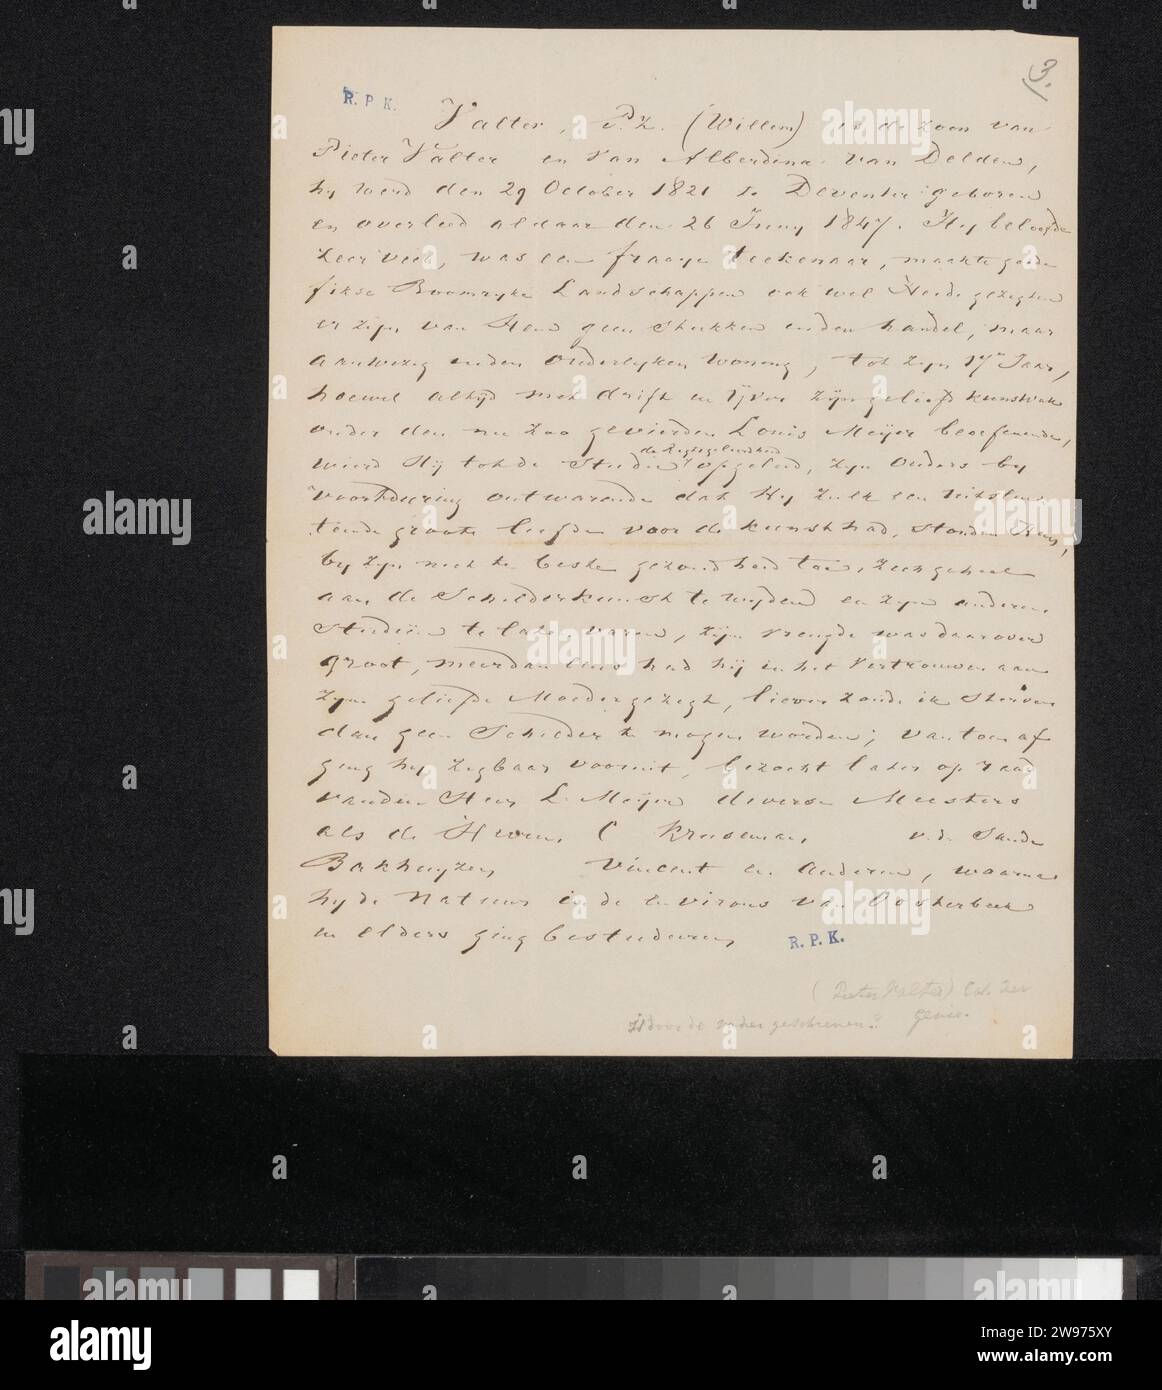 3.
R. P. K.
Valter, P.Z. (Willem) is de zoon van
Pieter Valter en van Alberdina van Delden,
hy werd den 29 October 1821 te Deventer geboren
en overleed aldaar den 26 Juny 1847. Hy beloofde
zeer veel, was een fraaye teekenaar, maakte goede
fikse Boomryke Landschappen ook wel Heide gezigten
er zyn van Hem geen stukken in den handel, maar
aanwezig in den Ouderlyken Woning, tot zyn 17e Jaar,
hoewel altyd met drift en yver zyn geliefd kunstvak
onder den nu zoo gevierden Louis Meijer beoefenende,
de Regtsgeleerdheid
wierd Hij tot de Studie opgeleid, zyn Ouders by
voortduring ontwarende dat Hy zulk een uitslui-
tende groote liefde voor de kunst had, stonden Hem,
by zyn niet te beste gezondheid toe, zich geheel
aan de Schilderkunst te wyden en zyn andere
Studiën te laten varen, zijn vreugde was daarover
groot, meer dan eens had hij in het vertrouwen aan
zyne geliefde Moeder gezegt, liever zoude ik sterven
dan geen Schilder te mogen worden; van toen af
ging hy zigbaar vooruit, bezocht later op raad
van den Heer L. Meijer diverse Meesters
als de Heeren C Kruseman, v.d. Sande
Bakhuyzen, Vincent en Anderen, waarna
hy de Natuur in de environs van Oosterbeek
en elders ging bestuderen,
R. P. K.
(Pieter Valter)
door de vader geschreven?
alamy
Image ID: 2W975XY
www.alamy.com